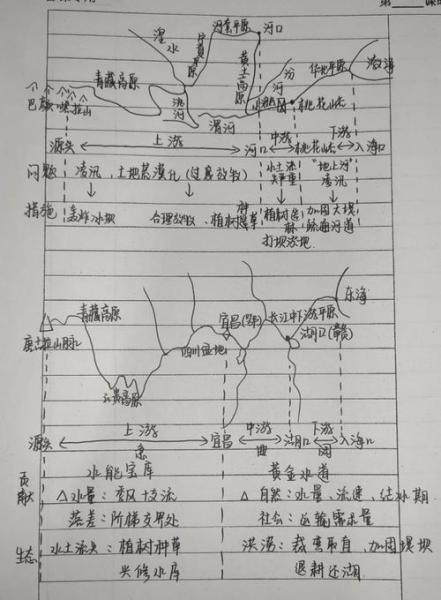 第 课
河套平原 河口
湟水 宁夏平原
青藏高原 黄土高原 汾河 华北平原 渤海
巴颜喀拉山 洮河 小浪底 桃花峪
渭河
源头 上游 河口 中游 桃花峪 下游 入海口
问题 凌汛、土地荒漠化(过度放牧) 水土流失严重 "地上河" 凌汛
措施 轰炸冰坝 合理放牧、植树种草 植树造林 加固大堤
打坝淤地 疏通河道
青藏高原 宜昌(鄂) 长江中下游平原 东海
唐古拉山脉 四川盆地 湖口(赣)
云贵高原
源头 上游 宜昌 中游 湖口 下游 入海口
急 曲 阔
贡献 水能宝库 黄金水道
△水量:季风 支流 △ 自然:水量、流速、结冰期
落差:阶梯交界处 社会:运输需求量
生态 水土流失:植树种草 洪涝:裁弯取直、加固堤坝
兴修水库 退耕还湖